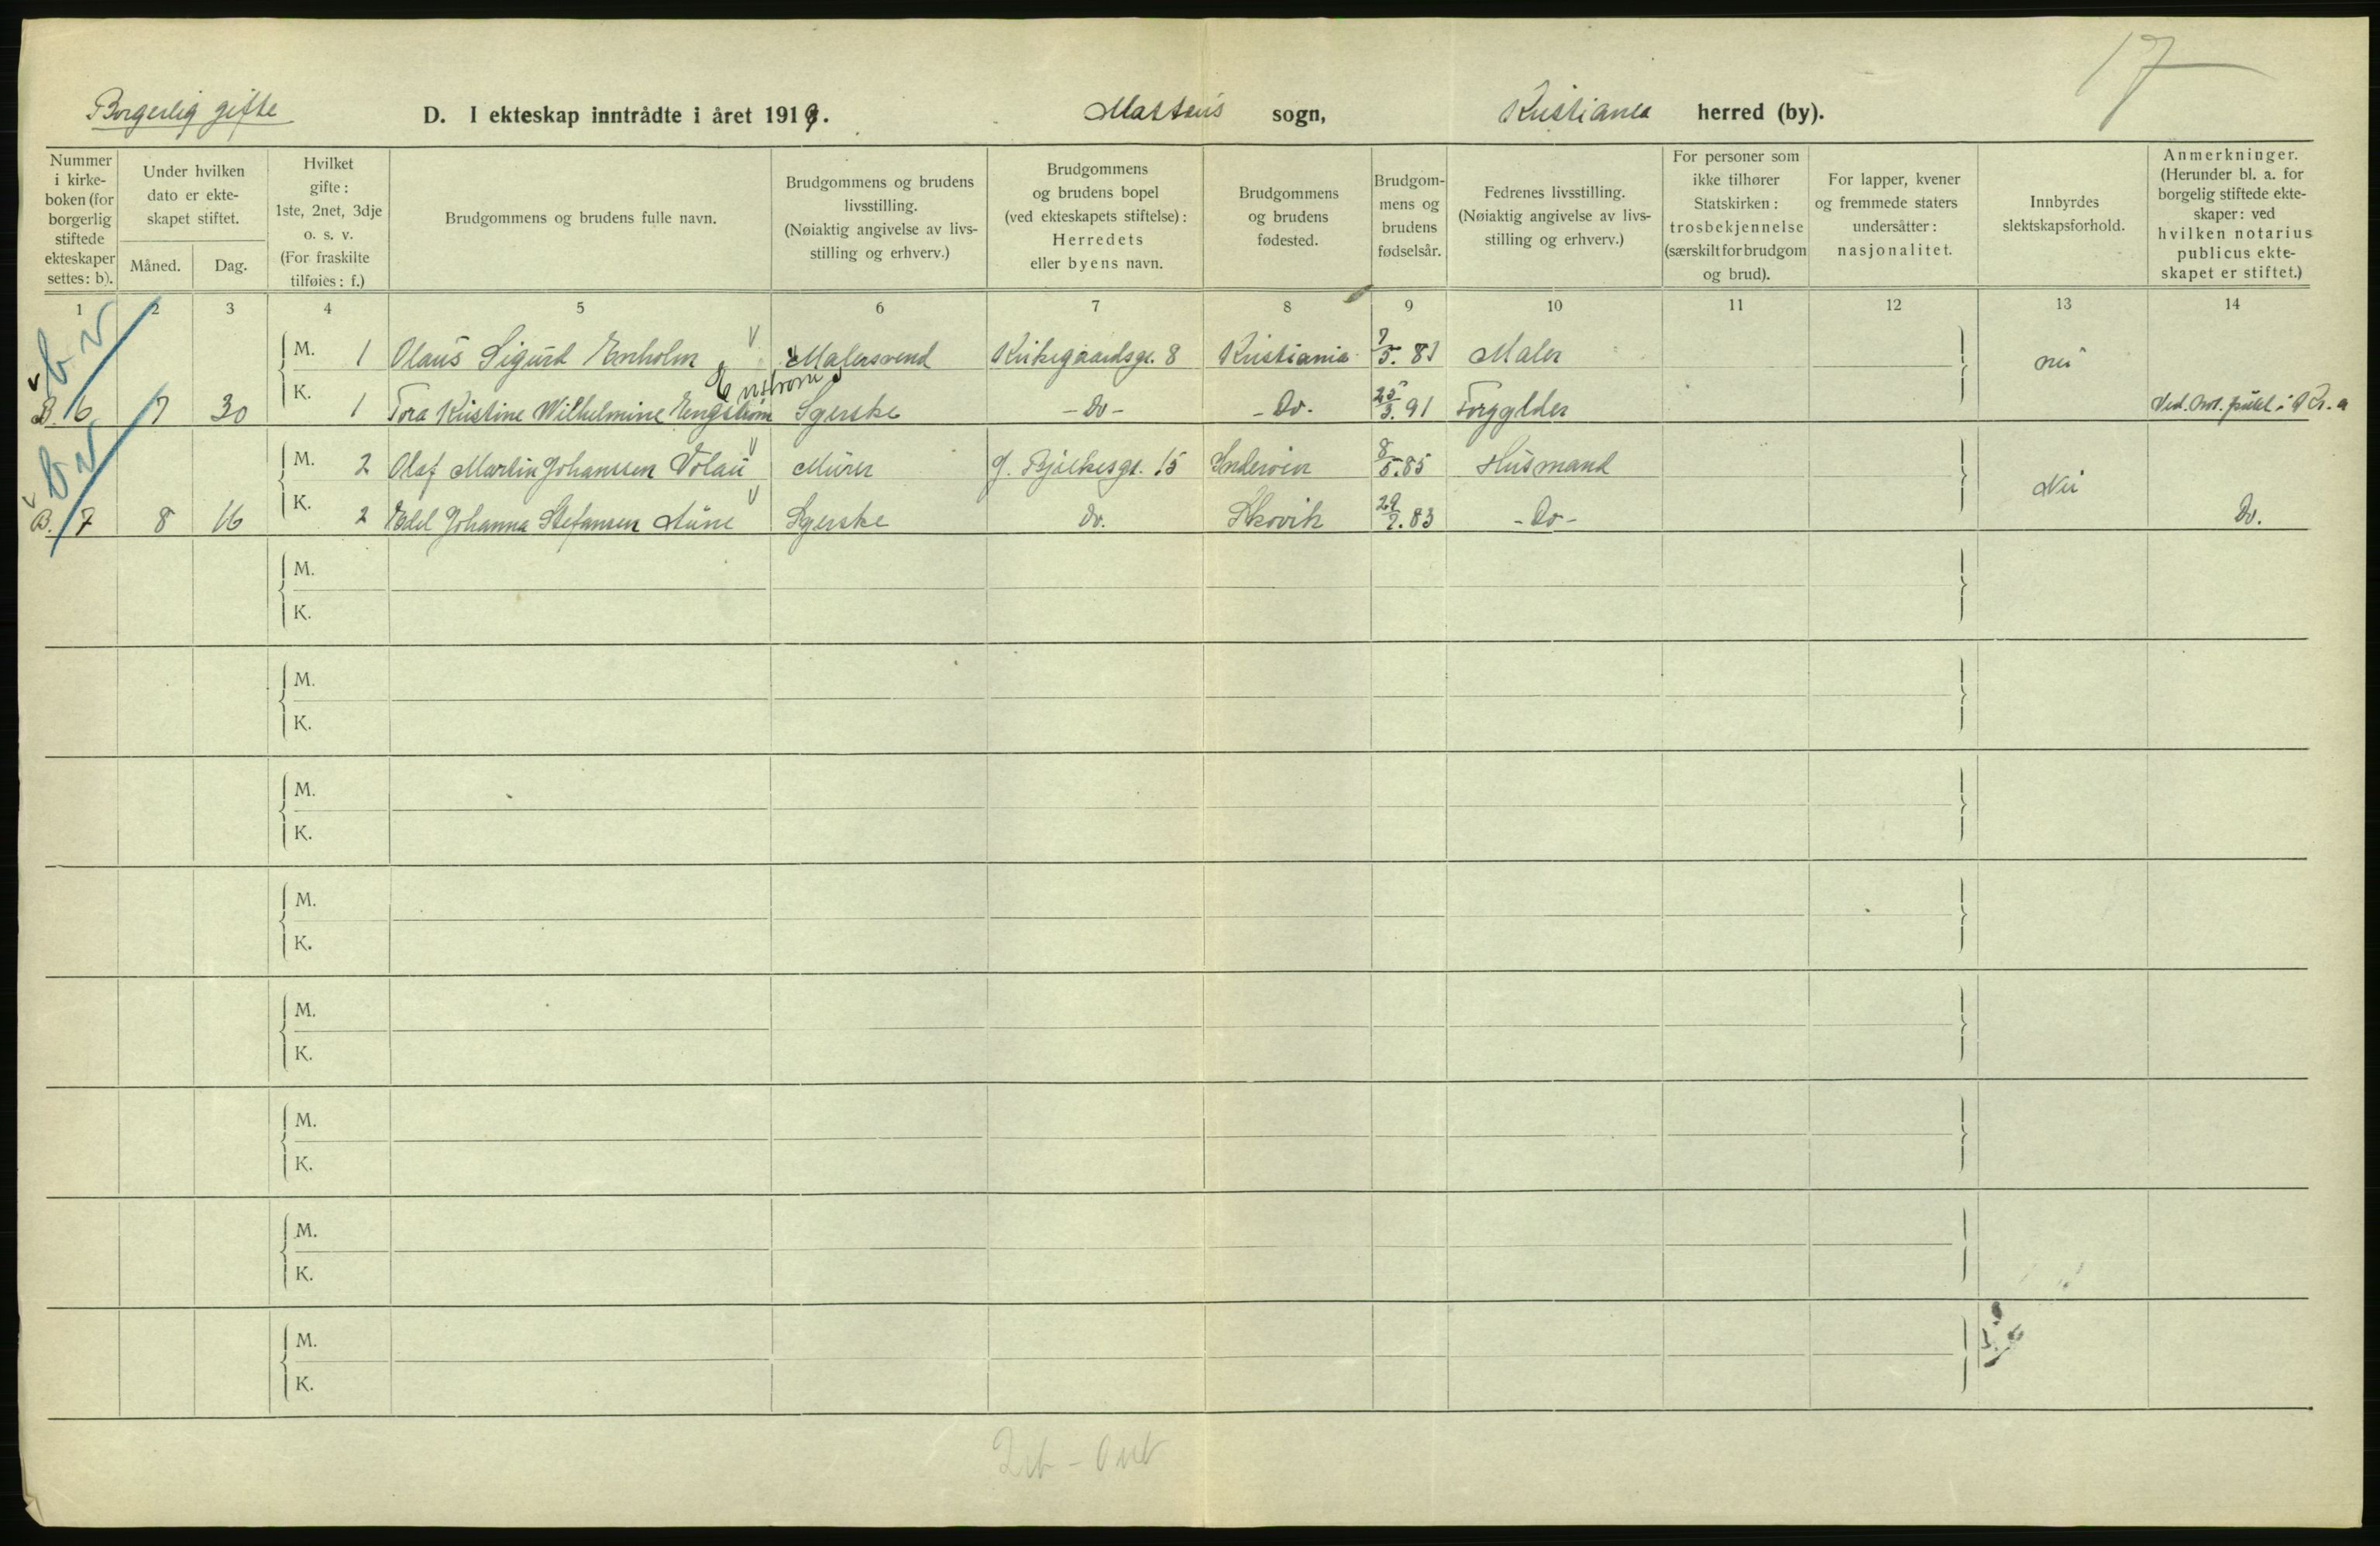 17
Borgerlig gifte D. I ekteskap inntrådte i året 1919. Matteus sogn, Kristiania herred (by).
Nummer i kirke-boken (for borgerlig stiftede ekteskaper settes: b).
Under hvilken dato er ekte-skapet stiftet.
Måned. Dag.
Hvilket gifte: 1ste, 2net, 3dje o. s. v. (For fraskilte tilføies: f.)
Brudgommens og brudens fulle navn.
Brudgommens og brudens livsstilling. (Nøiaktig angivelse av livs-stilling og erhverv.)
Brudgommens og brudens bopel (ved ekteskapets stiftelse): Herredets eller byens navn.
Brudgommens og brudens fødested.
Brudgom-mens og brudens fødselsår.
Fedrenes livsstilling. (Nøiaktig angivelse av livs-stilling og erhverv.)
For personer som ikke tilhører Statskirken: trosbekjennelse (særskilt for brudgom og brud).
For lapper, kvener og fremmede staters undersåtter: nasjonalitet.
Innbyrdes slektskapsforhold.
Anmerkninger. (Herunder bl. a. for borgelig stiftede ekte-skaper: ved hvilken notarius publicus ekte-skapet er stiftet.)
1 2 3 4 5 6 7 8 9 10 11 12 13 14
b v
M. 1 Olaus Sigurd Enholm Malersvend Kirkegaardsgt. 8 Kristiania 7/5. 81 Maler nei
Enstrøm
B. 6 7 30 K. 1 Tora Kristine Wilhelmine Engstrøm Syerske - Do - - Do. 25/3. 91 Forgylder Ved. Not. publ. i Kr.a
b v
M. 2 Olaf Martin Johanssen Volau Murer J. Bjelkesgt. 15 Inderøen 8/5. 85 Husmand Nei
B. 7 8 16 K. 2 Edel Johanna Stefansen Aune Syerske Do. Skovik 29/7. 83 - Do - Do.
M.
K.
M.
K.
M.
K.
M.
K.
M.
K.
M.
K.
M.
K.
M.
K.